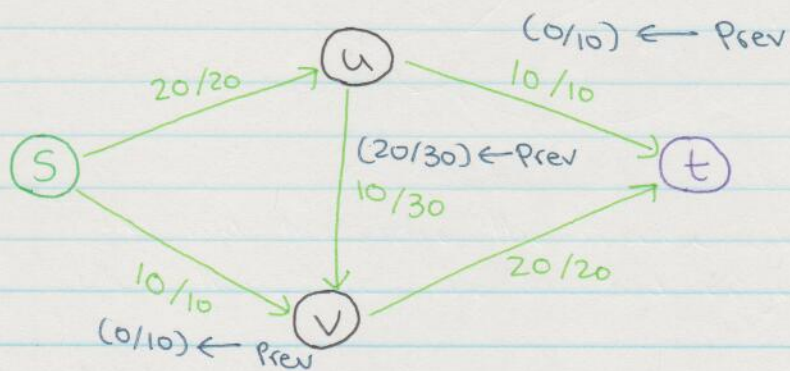 (0/10) ← Prev
u
20/20
10/10
S
(20/30) ← Prev
t
10/30
10/10
20/20
v
(0/10) ← Prev